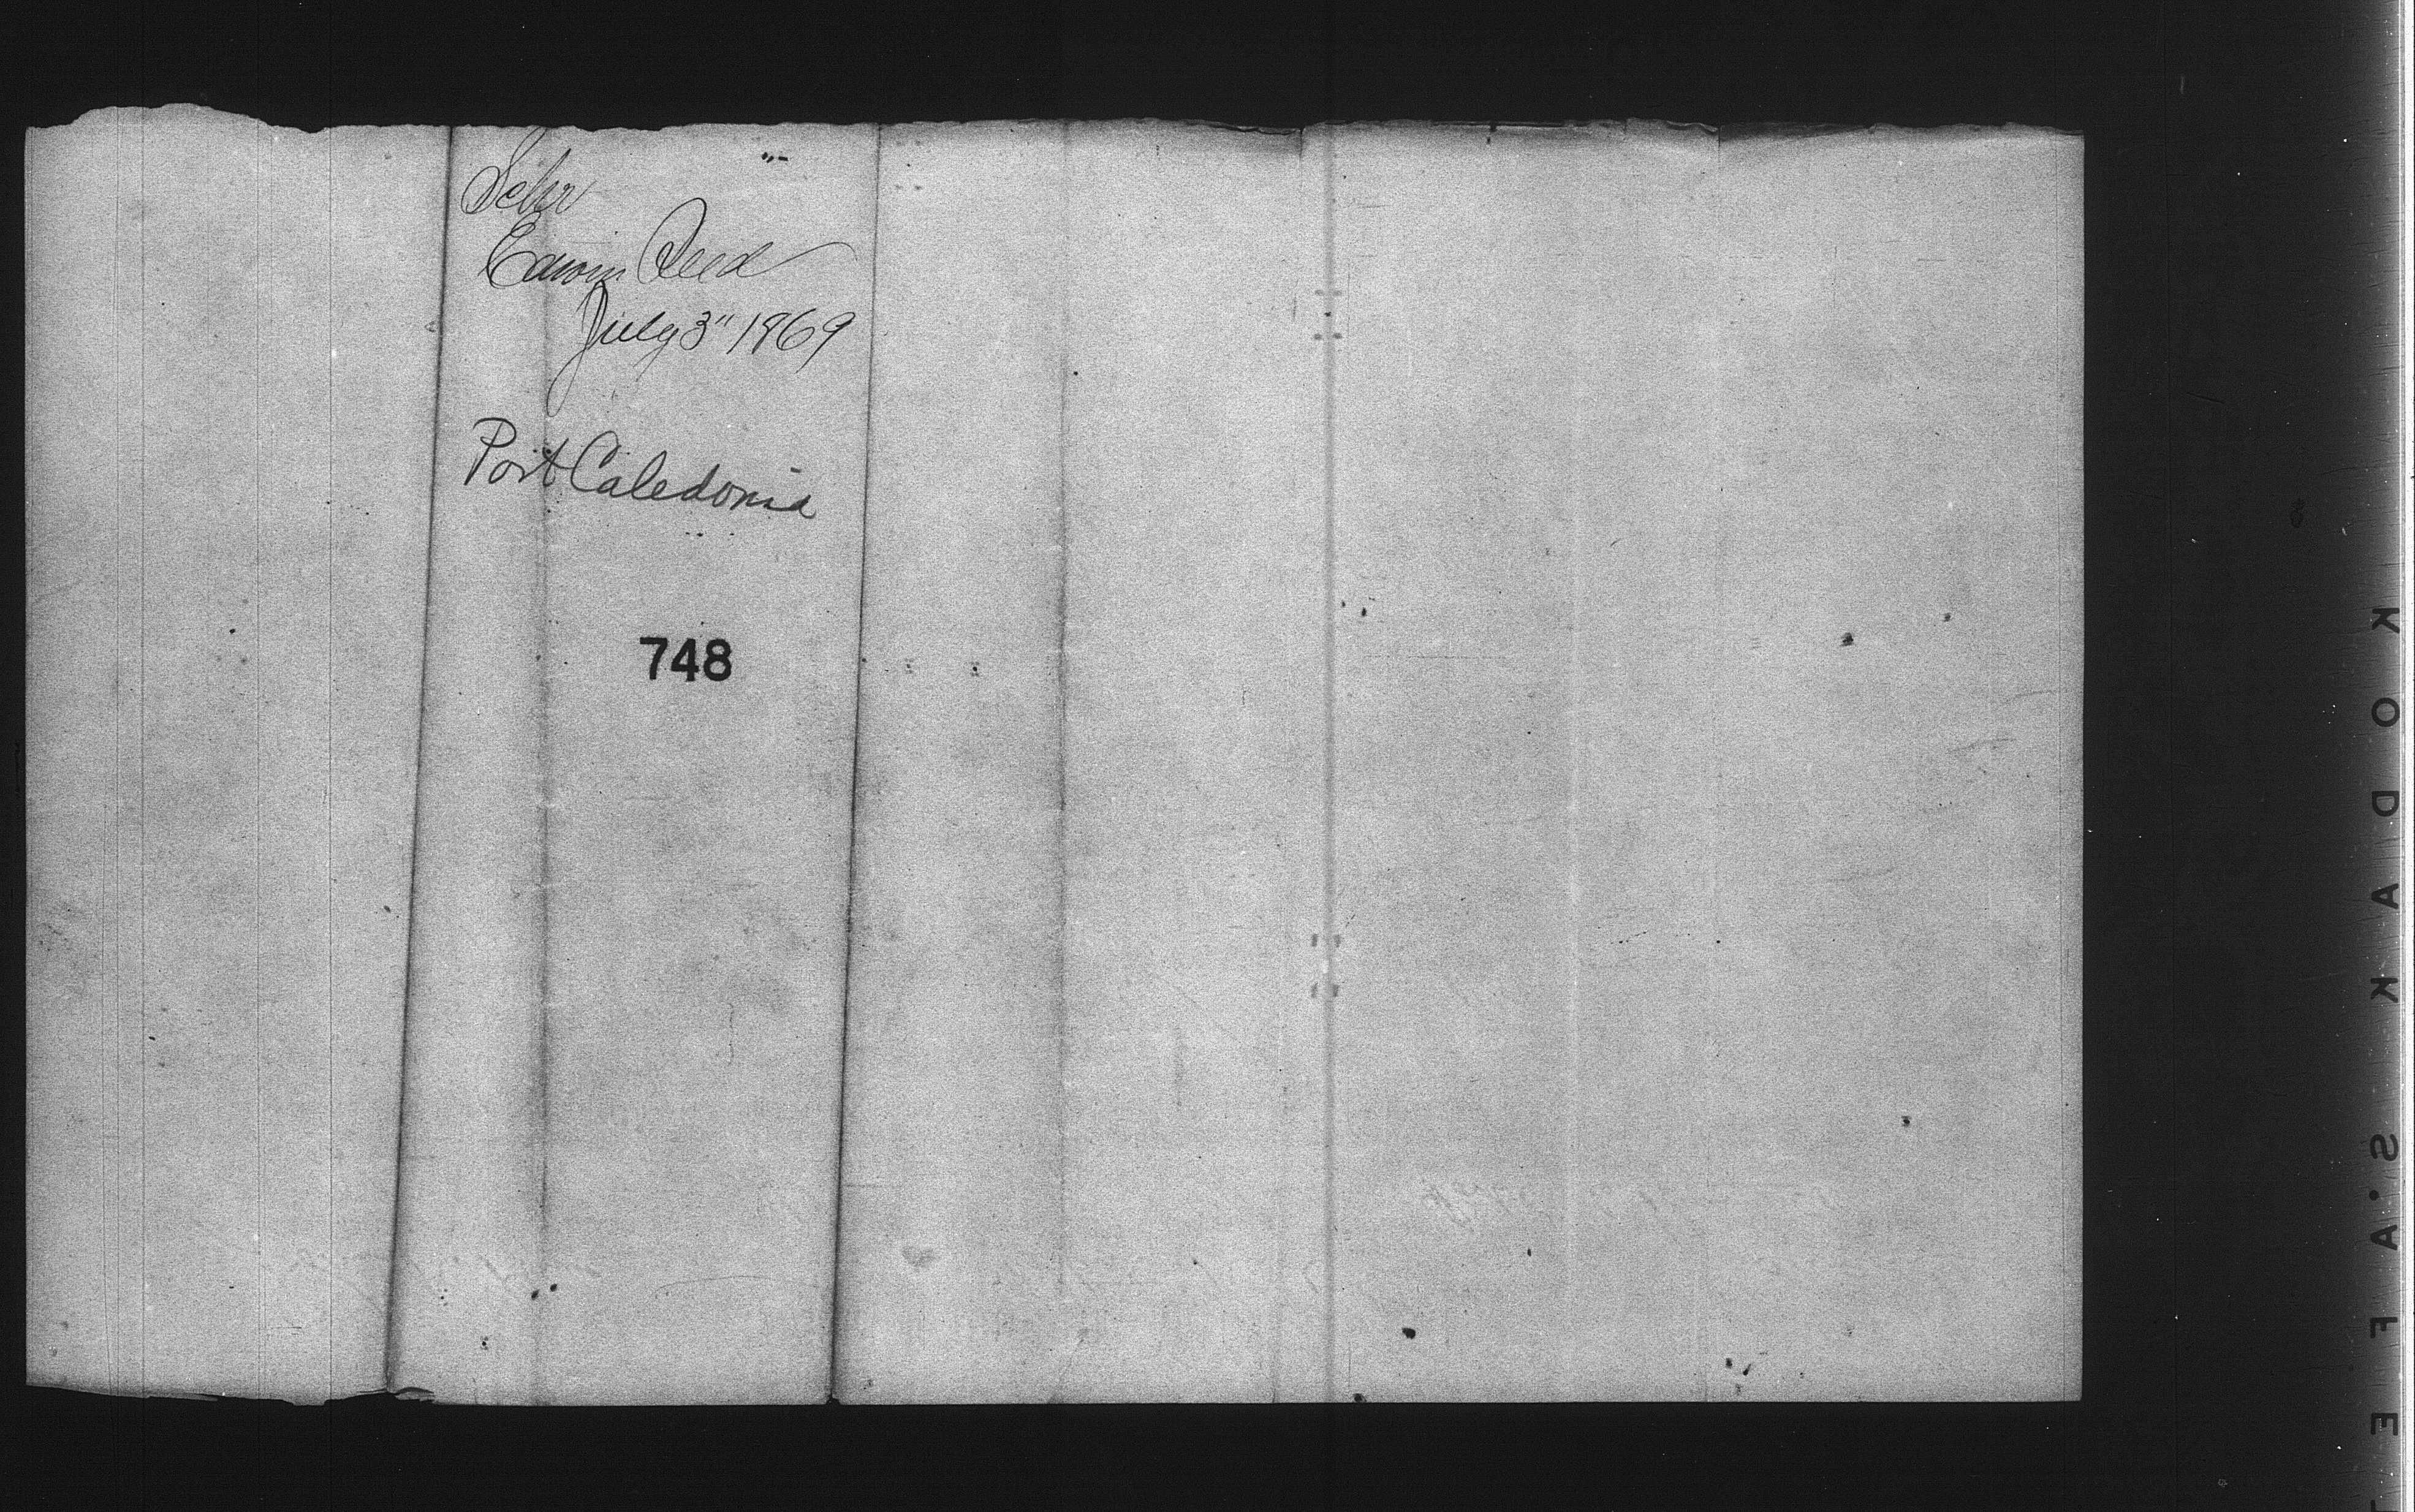 Schr
Edwin Reed
July 3" 1869
Port Caledonia
748
KODAK S.AFE